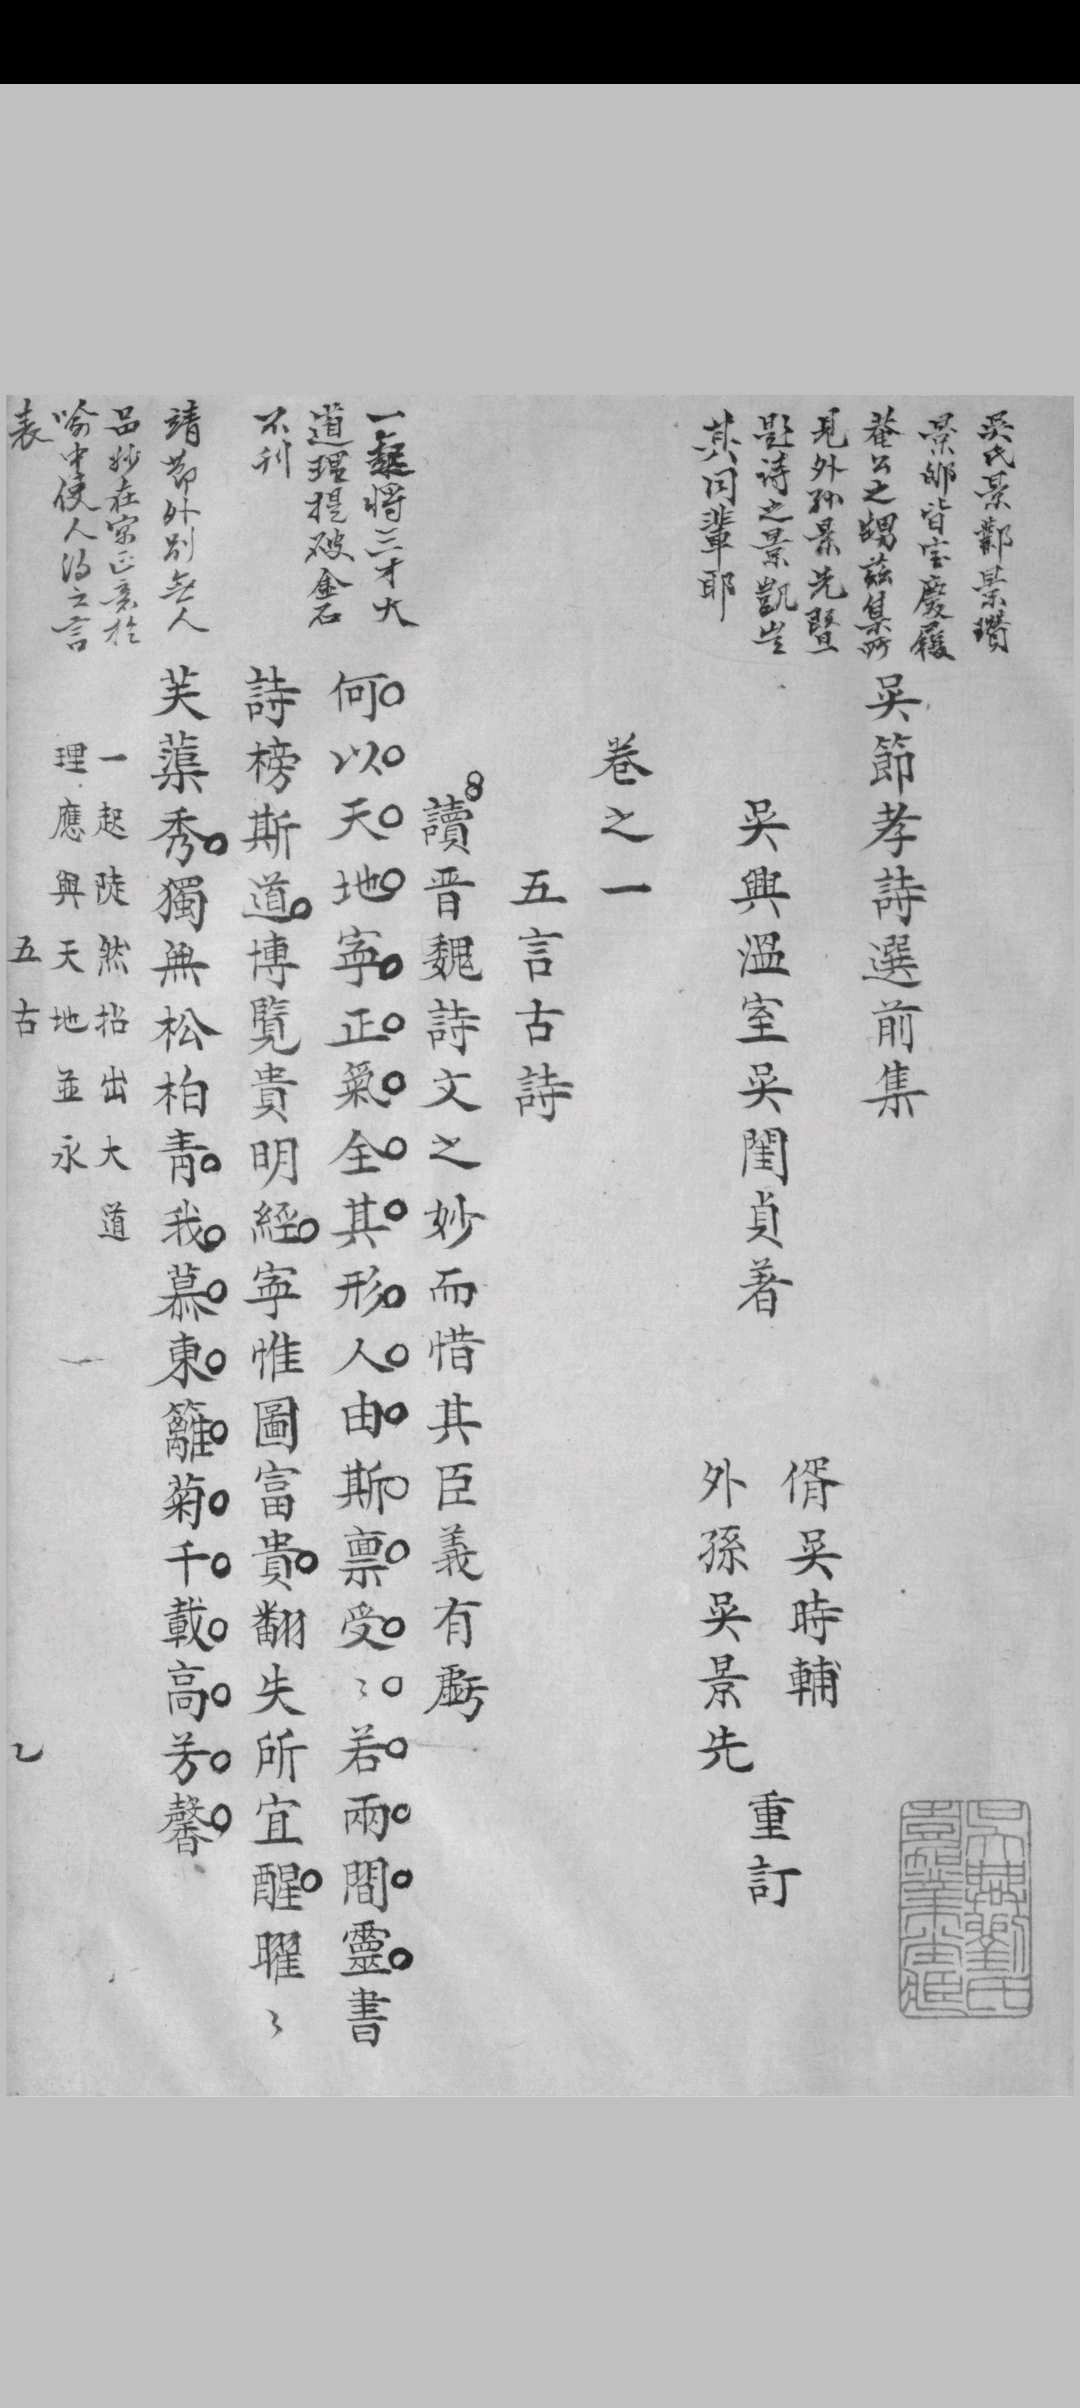 吳氏景鄰景瓚
景邠皆宝慶履
菴公之甥茲集所
見外孫景先暨
題詩之景凱豈
其同輩耶
吳節孝詩選前集
吳興溫室吳閨貞著
偦吳時輔
外孫吳景先
重訂
卷之一
五言古詩
讀晋魏詩文之妙而惜其臣義有虧
一起將三才大
道理提破金石
不刊
何以天地寕正氣全其形人由斯禀受〻若兩間靈書
詩榜斯道博覽貴明經寕惟圖富貴翻失所宜醒曜〻
芙蕖秀獨無松柏靑我慕東籬菊千載高芳馨
靖節外別無人
品妙在家正意於
喻中使人得之言
表
一起陡然拈出大道
理應與天地並永
五古
乙
吳興劉氏
嘉業堂藏